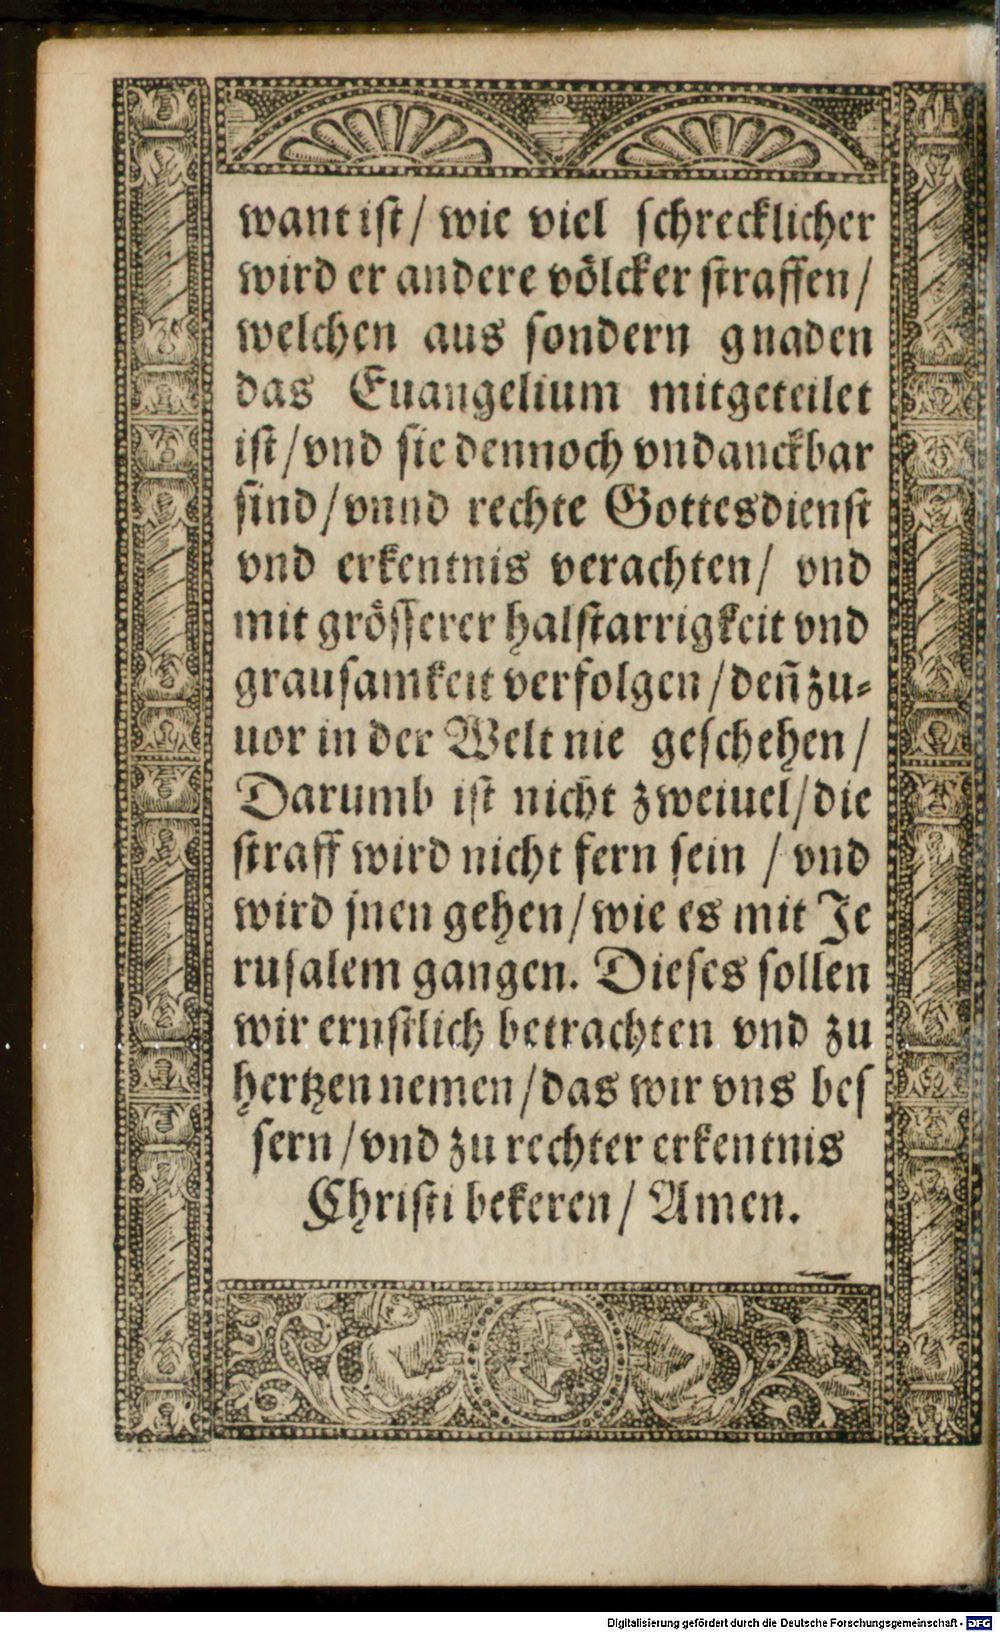 want ist/ wie viel schrecklicher
wird er andere völcker straffen/
welchen aus sondern gnaden
das Euangelium mitgeteilet
ist/vnd sie dennoch vndanckbar
sind/vnnd rechte Gottesdienst
vnd erkentnis verachten/ vnd
mit grösserer halstarrigkeit vnd
grausamkeit verfolgen/deñ zu⸗
uor in der Welt nie geschehen/
Darumb ist nicht zweiuel/die
straff wird nicht fern sein / vnd
wird jnen gehen/wie es mit Je
rusalem gangen. Dieses sollen
wir ernstlich betrachten vnd zu
hertzen nemen/das wir vns bes
sern/vnd zu rechter erkentnis
Christi bekeren/ Amen.
Digitalisierung gefördert durch die Deutsche Forschungsgemeinschaft - DFG